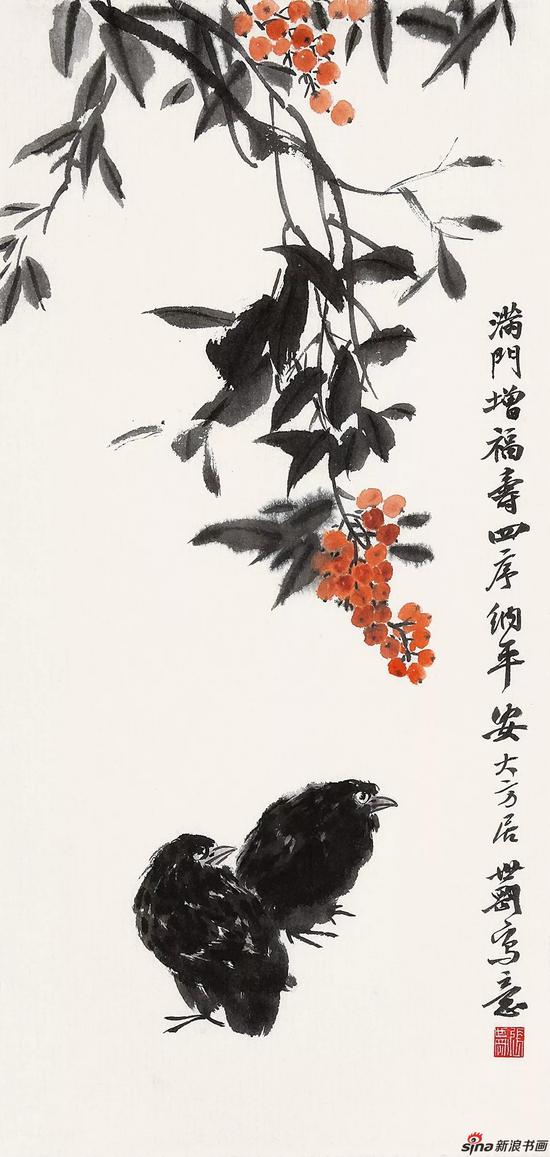 滿門增福壽四序納平安大方居世剛寫意
sina新浪书画